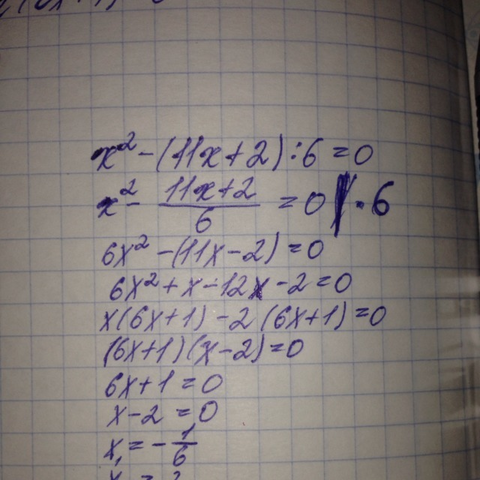 x² - (11x + 2) : 6 = 0
x² - (11x + 2)/6 = 0 | · 6
6x² - (11x - 2) = 0
6x² + x - 12x - 2 = 0
x(6x + 1) - 2(6x + 1) = 0
(6x + 1)(x - 2) = 0
6x + 1 = 0
x - 2 = 0
x₁ = -1/6